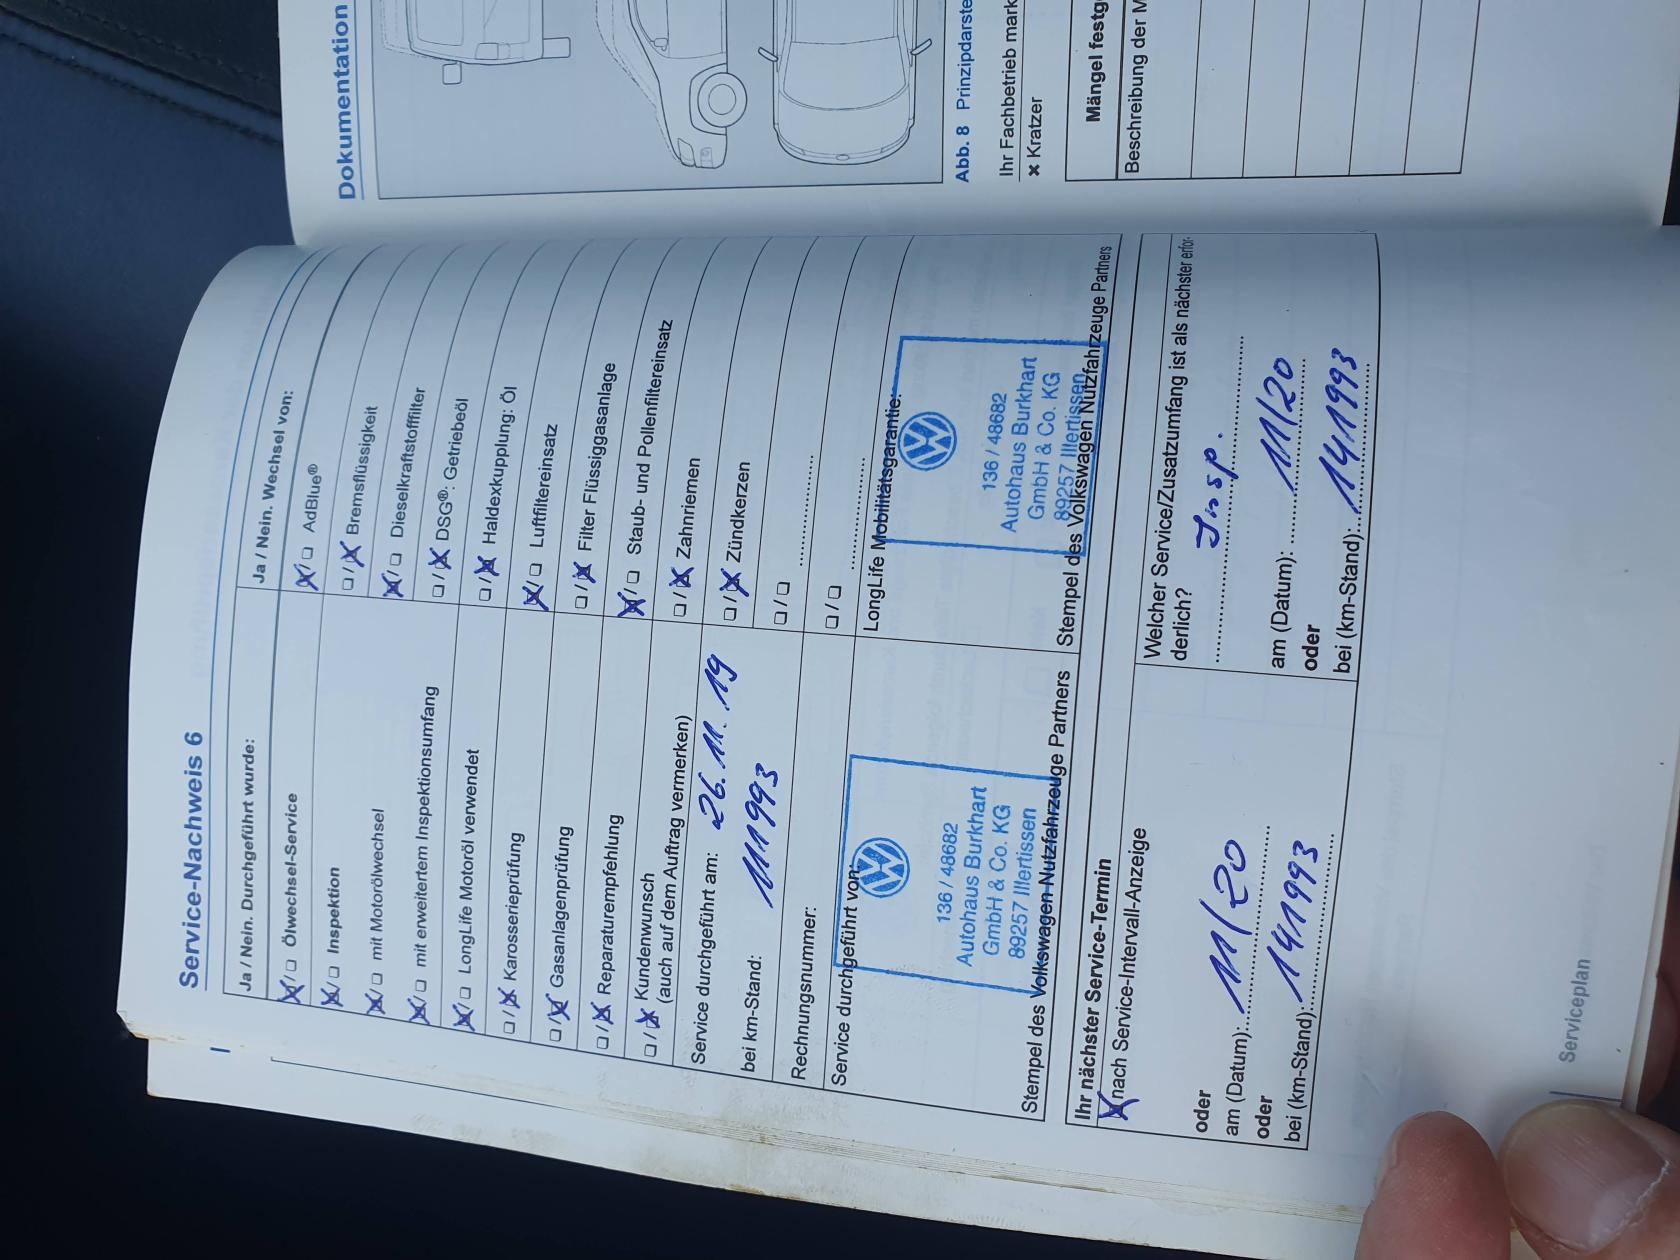 Service-Nachweis 6
Ja / Nein. Durchgeführt wurde:
☒/☐ Ölwechsel-Service
☒/☐ Inspektion
☒/☐ mit Motorölwechsel
☒/☐ mit erweitertem Inspektionsumfang
☒/☐ LongLife Motoröl verwendet
☐/☒ Karosserieprüfung
☐/☒ Gasanlagenprüfung
☐/☒ Reparaturempfehlung
☐/☒ Kundenwunsch
(auch auf dem Auftrag vermerken)
Service durchgeführt am: 26.11.19
bei km-Stand: 111993
Rechnungsnummer:
Service durchgeführt von:
136 / 48682
Autohaus Burkhart
GmbH & Co. KG
89257 Illertissen
Stempel des Volkswagen Nutzfahrzeuge Partners
Ja / Nein. Wechsel von:
☒/☐ AdBlue®
☐/☒ Bremsflüssigkeit
☒/☐ Dieselkraftstofffilter
☐/☒ DSG®: Getriebeöl
☐/☒ Haldexkupplung: Öl
☒/☐ Luftfiltereinsatz
☐/☒ Filter Flüssiggasanlage
☒/☐ Staub- und Pollenfiltereinsatz
☐/☒ Zahnriemen
☐/☒ Zündkerzen
☐/☐ ....................
☐/☐ ....................
LongLife Mobilitätsgarantie:
136 / 48682
Autohaus Burkhart
GmbH & Co. KG
89257 Illertissen
Stempel des Volkswagen Nutzfahrzeuge Partners
Ihr nächster Service-Termin
☒ nach Service-Intervall-Anzeige
oder
am (Datum): 11/20
oder
bei (km-Stand): 141993
Welcher Service/Zusatzumfang ist als nächster erfor-
derlich?
Insp.
am (Datum): 11/20
oder
bei (km-Stand): 141993
Serviceplan
Dokumentation
Abb. 8 Prinzipdarste
Ihr Fachbetrieb mark
× Kratzer
Mängel festg
Beschreibung der M